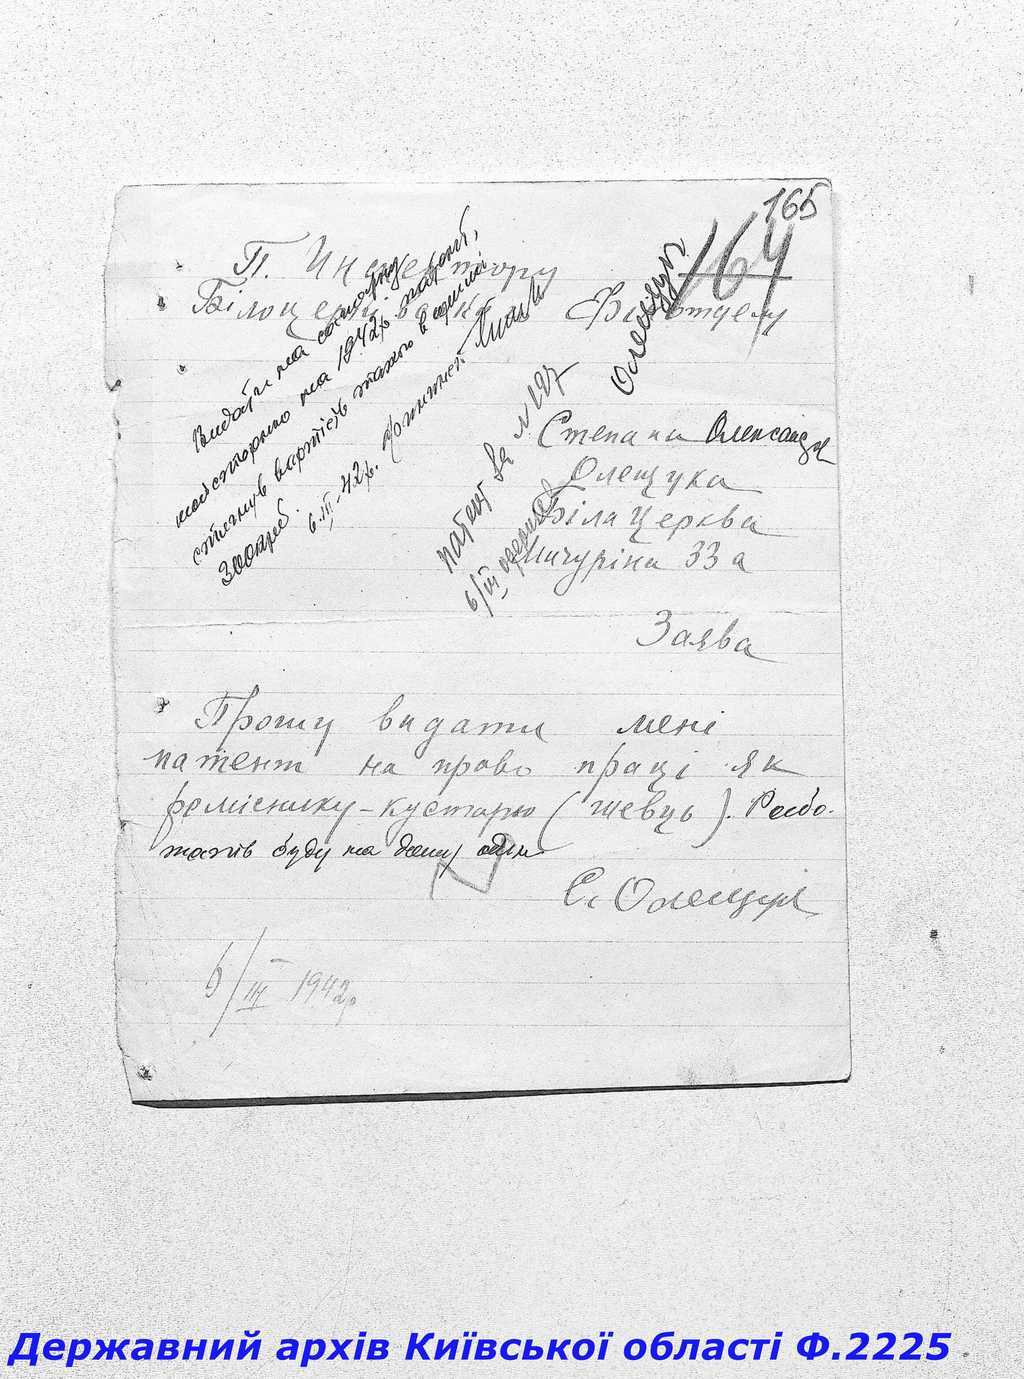 165
164
П. Инспектору
Білоцерківського Фінотделу
Олещук
Видати на
майстерню на 1942р. патент,
стягнув вартість такого в сумі
300 крб.
6.III.42р.
патент за N 197
6/III одержав
Степана Олександр
Олещука
Біла Церква
Мичуріна 33 а
Заява
Прошу видати мені
патент на право праці як
реміснику-кустарю (швець). Робо-
тать буду на дому один
С. Олещук
6/III 1942р
Державний архів Київської області Ф.2225